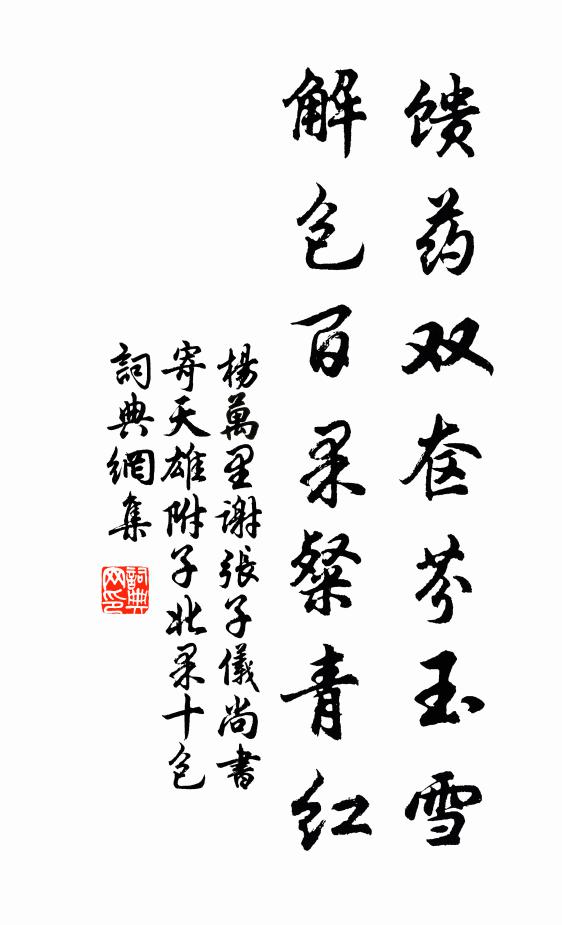 馈药双奁芬玉雪
解包百果粲青红
楊萬里谢張子儀尚書
寄天雄附子北果十包
詞典網集
詞典网印